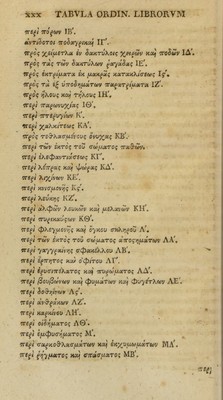 xxx TABVLA ORDIN. LIBRORVM
περὶ πόρων ΙΒ´.
ἀντίδοτος ποδαγρικὴ ΙΓ´.
πρὸς χείμετλα ἐν δακτύλοις χειρῶν καὶ ποδῶν ΙΔ´.
πρὸς τὰς τῶν δακτύλων ῥαγάδας ΙΕ´.
πρὸς ἐκτρίματα ἐκ μακρᾶς κατακλίσεως Ις´.
πρὸς τὰ ἐξ ὑποδημάτων παρατρίματα ΙΖ´.
πρὸς ἥλους καὶ τύλους ΙΗ´.
περὶ παρωνυχίας ΙΘ´.
περὶ πτερυγίων Κ´.
περὶ χαλκίτεως ΚΑ´.
πρὸς τοθλασμένους ὄνυχας ΚΒ´.
περὶ τῶν ἐκτὸς τοῦ σώματος παθῶν.
περὶ ἐλεφαντιάσεως ΚΓ´.
περὶ λέπρας καὶ ψώρας ΚΔ´.
περὶ λειχήνων ΚΕ´.
περὶ κνησμονῆς Κς´.
περὶ λεύκης ΚΖ´.
περὶ ἀλφῶν λευκῶν καὶ μελανῶν ΚΗ´.
περὶ πυρικαύτων ΚΘ´.
περὶ φλεγμονῆς καὶ ὄγκου σκληροῦ Λ´.
περὶ τῶν ἐκτὸς τοῦ σώματος ἀποστημάτων ΛΑ´.
περὶ γαγγραίνης σφακέλου ΛΒ´.
περὶ ἕρπητος καὶ ὀφίτου ΛΓ´.
περὶ ἐρυσιπέλατος καὶ πυρώματος ΛΔ´.
περὶ βουβώνων καὶ φυμάτων καὶ φυγέτλων ΛΕ´.
περὶ δοθιήνων Λς´.
περὶ ἀνθράκων ΛΖ´.
περὶ καρκίνου ΛΗ´.
περὶ οἰδήματος ΛΘ´.
περὶ ἐμφυσήματος Μ´.
περὶ παρκοθλασμάτων καὶ ἐκχυμωμάτων ΜΑ´.
περὶ ῥήγματος καὶ σπάσματος ΜΒ´.
περὶ